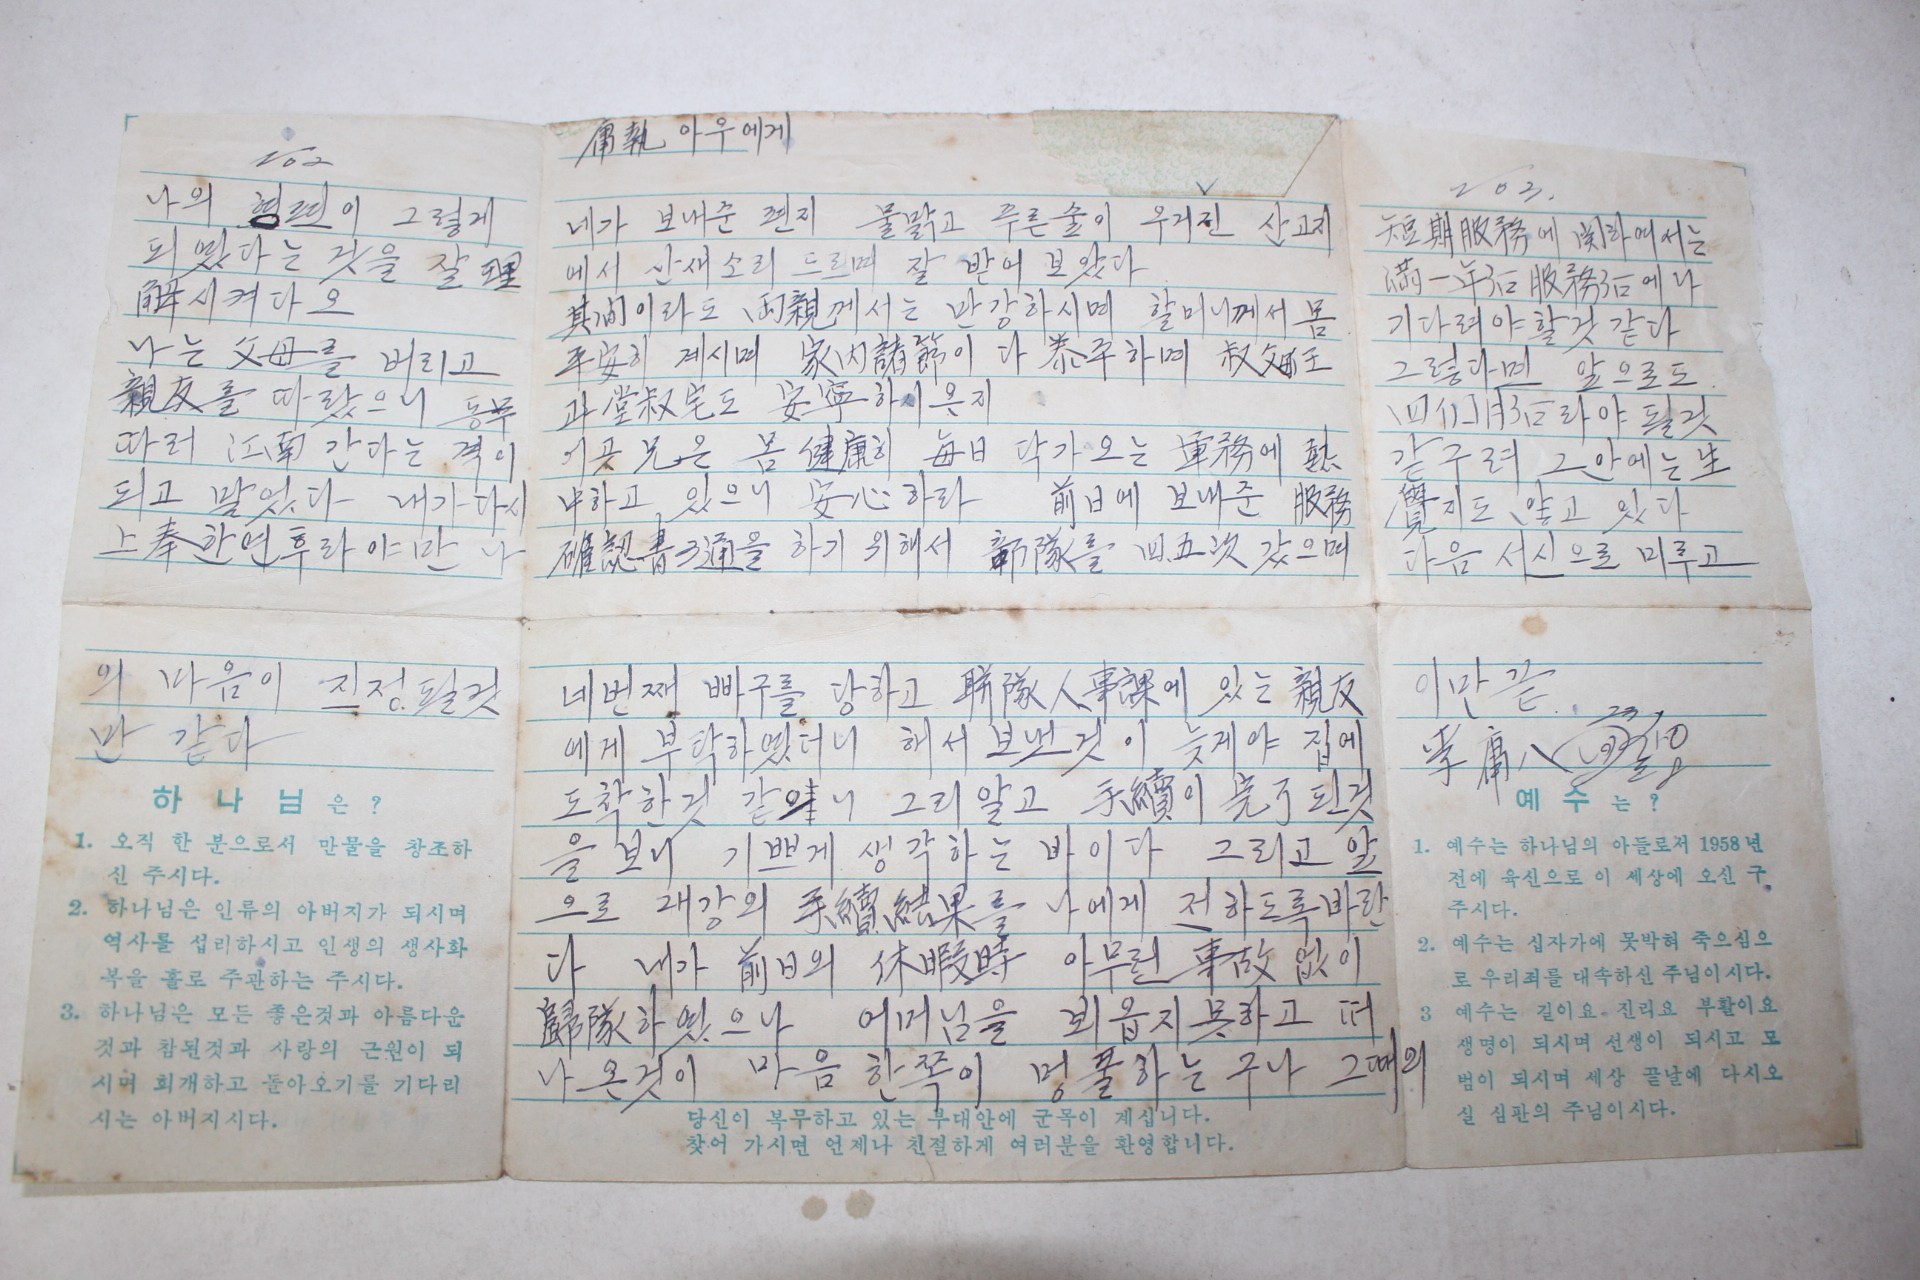 庸執 아우에게
네가 보내준 편지 물맑고 푸른술이 우거진 산고지
에서 산새소리 드르며 잘 받어 보았다
其間이라도 兩親께서는 만강하시며 할머니께서 몸
平安히 계시며 家內諸節이 다 泰平하며 叔父任
과 堂叔宅도 安寧하시온지
이곳 兄은 몸 健康히 每日 닥가오는 軍務에 熱
中하고 있으니 安心하라 前日에 보내준 服務
確認書 3通을 하기 위해서 部隊를 四五次 갔으며
네번째 빠구를 당하고 聯隊人事課에 있는 親友
에게 부탁하였더니 해서 보낸것이 늦게야 집에
도착한것 같으니 그리알고 手續이 完了된것
을 보니 기쁘게 생각하는 바이다 그리고 앞
으로 대강의 手續結果를 나에게 전하도록바란
다 내가 前日의 休暇時 아무런 事故없이
歸隊하였으나 어머님을 뵈옵지 못하고 떠
나온것이 마음 한쪽이 멍풀하는구나 그때의
당신이 복무하고 있는 부대안에 군목이 계십니다.
찾어 가시면 언제나 친절하게 여러분을 환영합니다.
202
나의 형띤이 그렇게
되였다는 것을 잘 理
解시켜다오
나는 父母를 버리고
親友를 따랐으니 동무
따러 江南간다는 격이
되고 말었다 내가다시
上奉한연후라야만 나
의 마음이 진정될것
만 같다
하나님은?
1. 오직 한 분으로서 만물을 창조하
신 주시다.
2. 하나님은 인류의 아버지가 되시며
역사를 섭리하시고 인생의 생사화
복을 홀로 주관하는 주시다.
3. 하나님은 모든 좋은것과 아름다운
것과 참된것과 사랑의 근원이 되
시며 회개하고 돌아오기를 기다리
시는 아버지시다.
203.
短期服務에 関하여서는
満一年3個 服務3個에나
기다려야할것 같다
그렇다면 앞으로도
四個月3個라야 될것
같구려 그안에는生
覺지도 않고 있다
다음 서신으로 미루고
이만 끝
李庸八
예수는?
1. 예수는 하나님의 아들로저 1958년
전에 육신으로 이 세상에 오신 구
주시다.
2. 예수는 십자가에 못박혀 죽으심으
로 우리죄를 대속하신 주님이시다.
3 예수는 길이요 진리요 부활이요
생명이 되시며 선생이 되시고 모
범이 되시며 세상 끝날에 다시오
실 심판의 주님이시다.